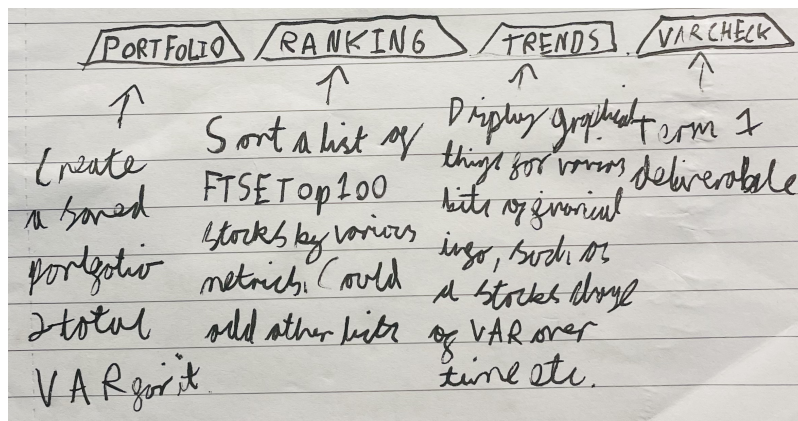 PORTFOLIO RANKING TRENDS VARCHECK
Create
a saved
portfolio
& total
VAR for it.
Sort a list of
FTSETop100
stocks by various
metrics. Could
add other lists
Display graphical
things for various
bits of financial
info, such as
a stocks change
of VAR over
time etc.
Term 1
deliverable